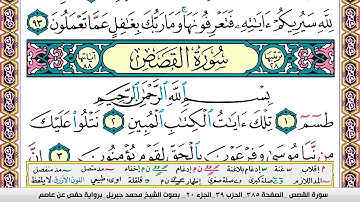 لِلَّهِ سَيُرِيكُمْ ءَايَٰتِهِۦ فَتَعْرِفُونَهَا وَمَا رَبُّكَ بِغَٰفِلٍ عَمَّا تَعْمَلُونَ ٩٣
سُورَةُ القَصَصِ
بِسْمِ ٱللَّهِ ٱلرَّحْمَٰنِ ٱلرَّحِيمِ
طسٓمٓ ١ تِلْكَ ءَايَٰتُ ٱلْكِتَٰبِ ٱلْمُبِينِ ٢ نَتْلُوا۟ عَلَيْكَ
مِن نَّبَإِ مُوسَىٰ وَفِرْعَوْنَ بِٱلْحَقِّ لِقَوْمٍ يُؤْمِنُونَ ٣ إِنَّ
سورة القصص، الصفحة ٣٨٥، الحزب ٣٩، الجزء ٢٠، بصوت الشيخ محمد جبريل، برواية حفص عن عاصم